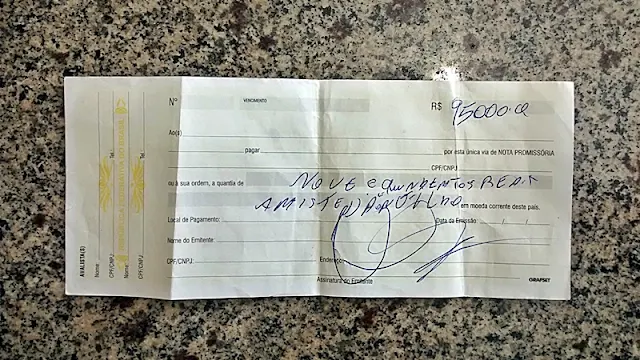 Nº VENCIMENTO R$ 95000.00
Ao(s)
pagar por esta única via de NOTA PROMISSÓRIA
CPF/CNPJ
ou à sua ordem, a quantia de NOVE e QUINDENTOS REAIS
em moeda corrente deste país.
Local de Pagamento: Data da Emissão: / /
Nome do Emitente:
CPF/CNPJ: Endereço:
Assinatura do Emitente GRAFSET
AVALISTA(S)
Nome
CPF/CNPJ: Tel:
Nome
CPF/CNPJ: Tel: